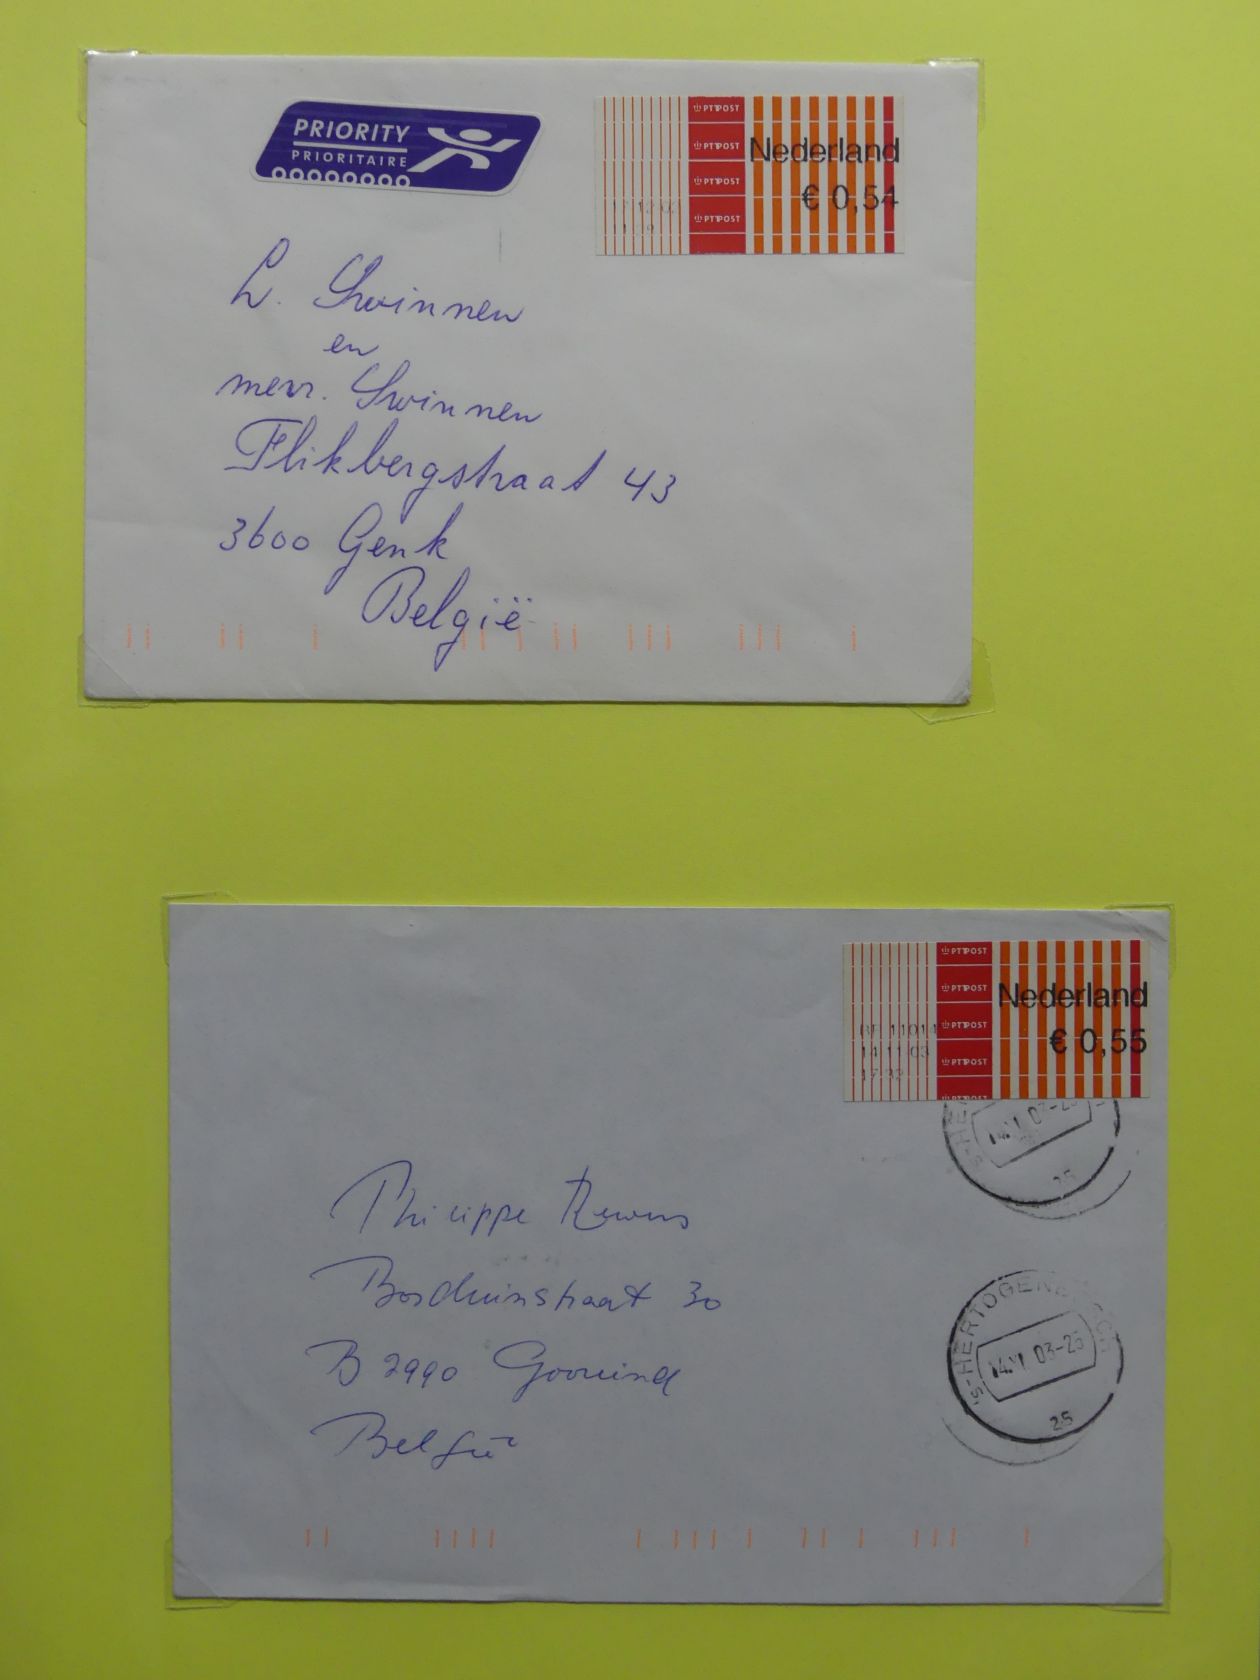 PRIORITY
PRIORITAIRE
PTT POST
PTT POST
PTT POST
PTT POST
Nederland
€ 0,54
L. Swinnen
en
mevr. Swinnen
Flikbergstraat 43
3600 Genk
België
PTT POST
PTT POST
PTT POST
PTT POST
PTT POST
Nederland
€ 0,55
14 11 03
17 32
25
Philippe
Bosduinstraat 30
B 2990
België
'S-HERTOGENBOSCH
14.XI.03-23
25